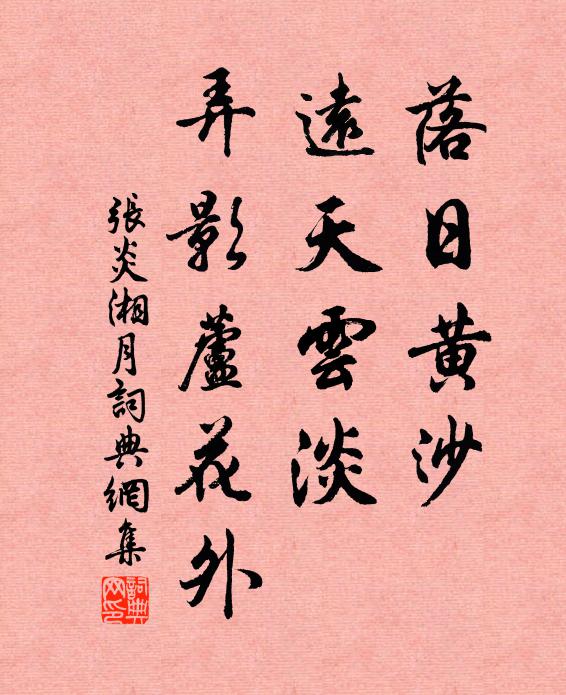 落日黄沙
遠天雲淡
弄影蘆花外
張炎湘月詞典網集
詞典
网印